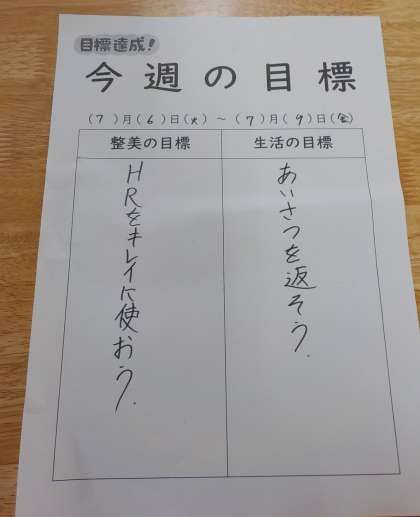 目標達成!
今週の目標
(7)月(6)日(火)~(7)月(9)日(金)
整美の目標
HRをキレイに使おう.
生活の目標
あいさつを返そう.